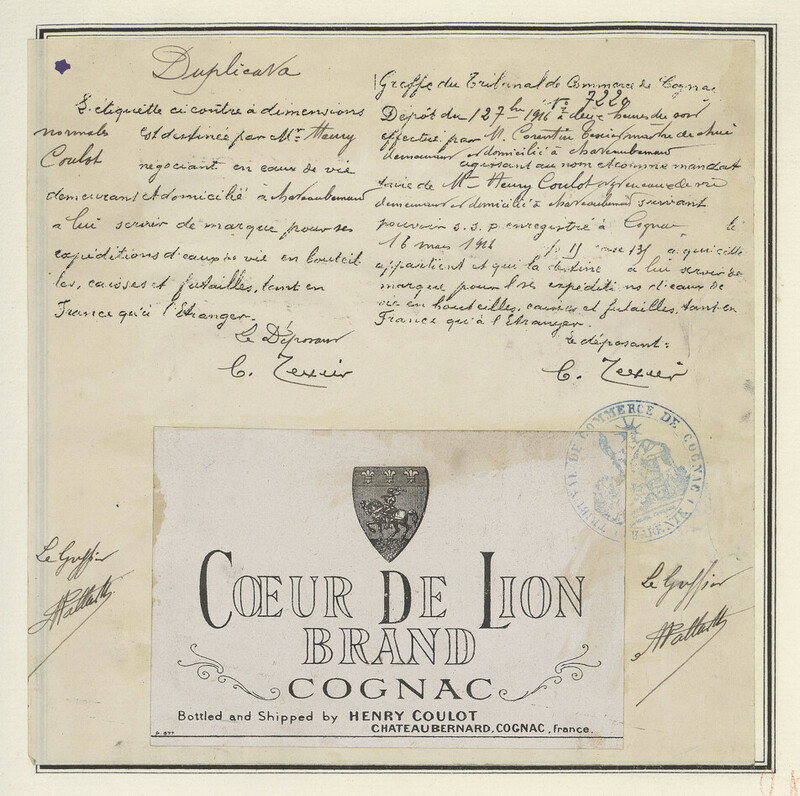 Duplicata
L'étiquette ci contre à dimensions
normale est destinée par Mr. Henry
Coulot négociant en eaux de vie
demeurant et domicilié à Chateaubernard
a lui servir de marque pour ses
expéditions d'eaux de vie en bouteil
les, caisses et futailles, tant en
France qu'à l'Etranger.
Le Déposant
C. Texier
Greffe du Tribunal de Commerce de Cognac
No 7220
Dépôt du 1916 à deux heures du soir
effectué par M. Corentin Texier, maître de chai
demeurant et domicilié à Chateaubernard
agissant au nom et comme mandat
taire de Mr. Henry Coulot négt en eaux de vie
demeurant et domicilié à Chateaubernard suivant
pouvoir s.s.p. enregistré à Cognac le
16 mars 1916 f. case 131 a qui elle
appartient et qui la destine à lui servir de
marque pour ses expéditions d'eaux de
vie en bouteilles, caisses et futailles, tant en
France qu'à l'Etranger.
Le déposant:
C. Texier
TRIBUNAL DE COMMERCE DE COGNAC
CHARENTE
Le Greffier
Le Greffier
CŒUR DE LION
BRAND
COGNAC
Bottled and Shipped by HENRY COULOT
CHATEAUBERNARD, COGNAC, France.